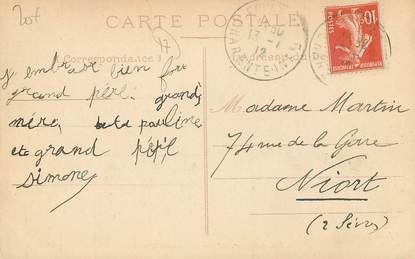 CARTE POSTALE
Correspondance
Adresse
13 - 1
12
CHARENTE-INF
10c
REPUBLIQUE FRANÇAISE
j embrasse bien fort
grand père. grand
mère, tata pauline
et grand pépé
simone
Madame Martin
74 rue de la Gare
Niort
(2 Sèvres)